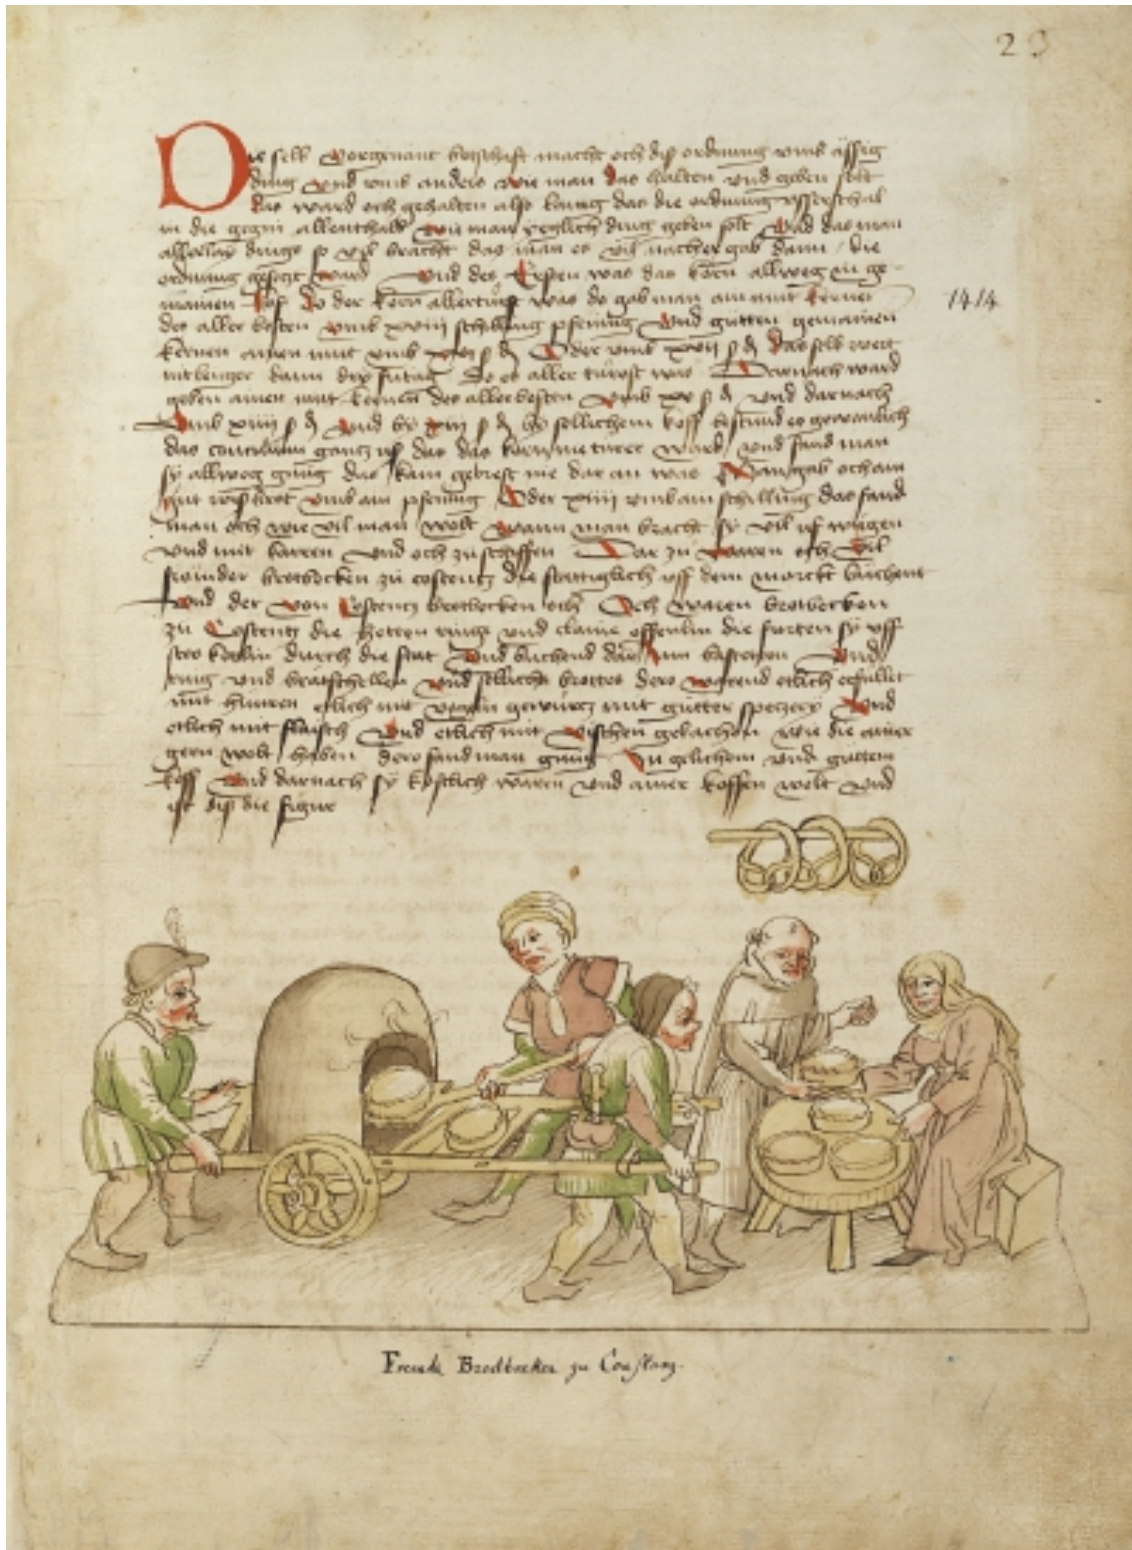 23
Die selb vorgenant botschaft macht och dis ordnung umb ässig
ding und umb anders wie man das halten und geben solt
das ward och gehalten also lang das die ordnung
in die gegni allenthalb wie man yeglich ding geben solt Und das man
allerlay dings so vil bracht das man es vil nächer gab dann die
ordnung gesetzt ward Und des Ersten was das korn allweg in ge-
mainem Do der kern allertürst was do gab man ain mut kernen
1414
des aller besten umb xviii schilling pfening Und gutten gemainen
kernen ainen mut umb Oder umb xvii ß d das selb wert
nit lenger dann dry Do es aller türost was Dernach ward
geben ainen mut kernen des aller besten umb xv ß d und darnach
Umb xiiii ß d und by xiii ß d by sollichem koff bestund es gewonlich
das concilium gantz uß das das korn nie türer ward und fand man
sy allweg gnug das kain gebrest nie dar an was Man gab och ain
gut umb ain pfening Oder xiiii umb ain schilling das fand
man och wie vil man wolt Wann man bracht sy vil uf wägen
und mit karren und och zu schiffen Dar zu waren och vil
frömder brotbecken zu costentz die stättiglich uff dem marckt bûchent
Und der von Costentz brotbecken och Och waren brotbecken
zu Costentz die hetten ringe und claine öffenlin die furten sy uff
durch die stat Und bûchend dar inn bastetten Und
ring und bratschellen und sollichs brottes dero warend etlich erfüllet
mit hûnren etlich mit gewürcz mit gutter speczery Und
etlich mit flaisch Und etlich mit vischen gebachen wie die ainer
gern wolt haben dero fand man gnug In gelichem und guttem
koff Und darnach sy kostlich waren und ainer koffen wolt Und
ist dis die figur
Fremde Brodbecken zu Constanz.